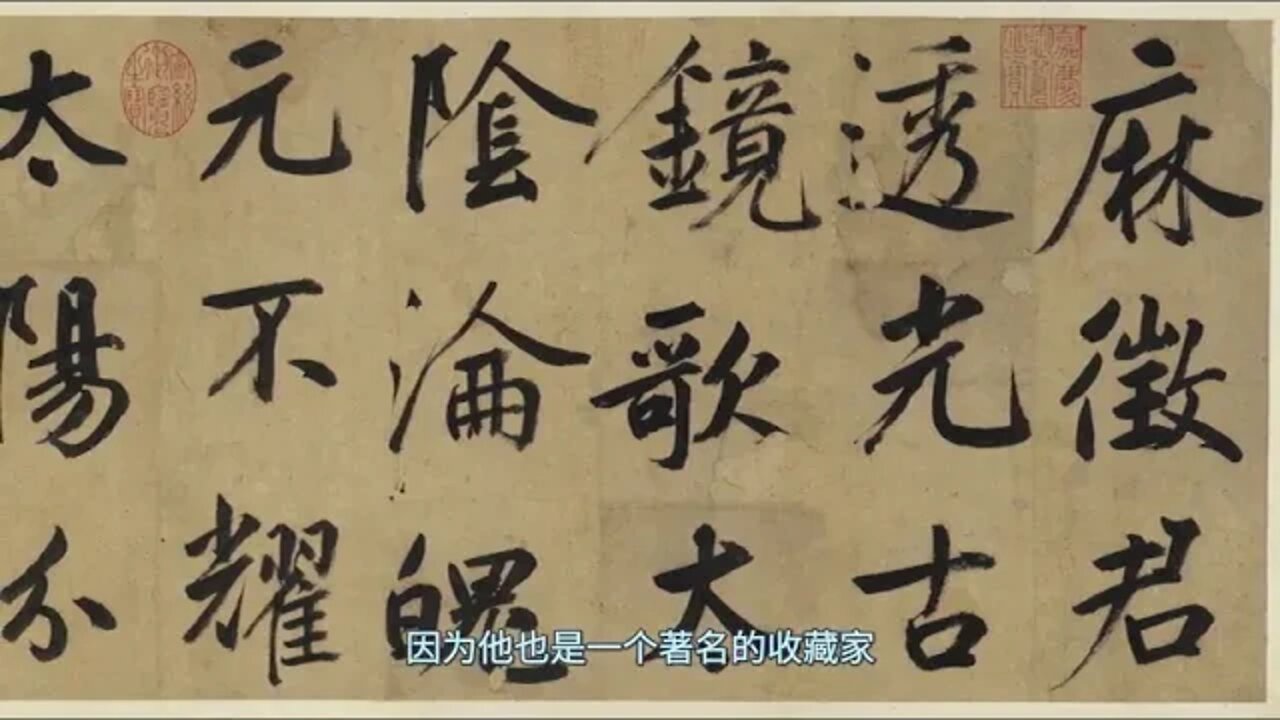 麻徵君
透光古
鏡歌太
陰淪魄
元不耀
太陽分
因为他也是一个著名的收藏家